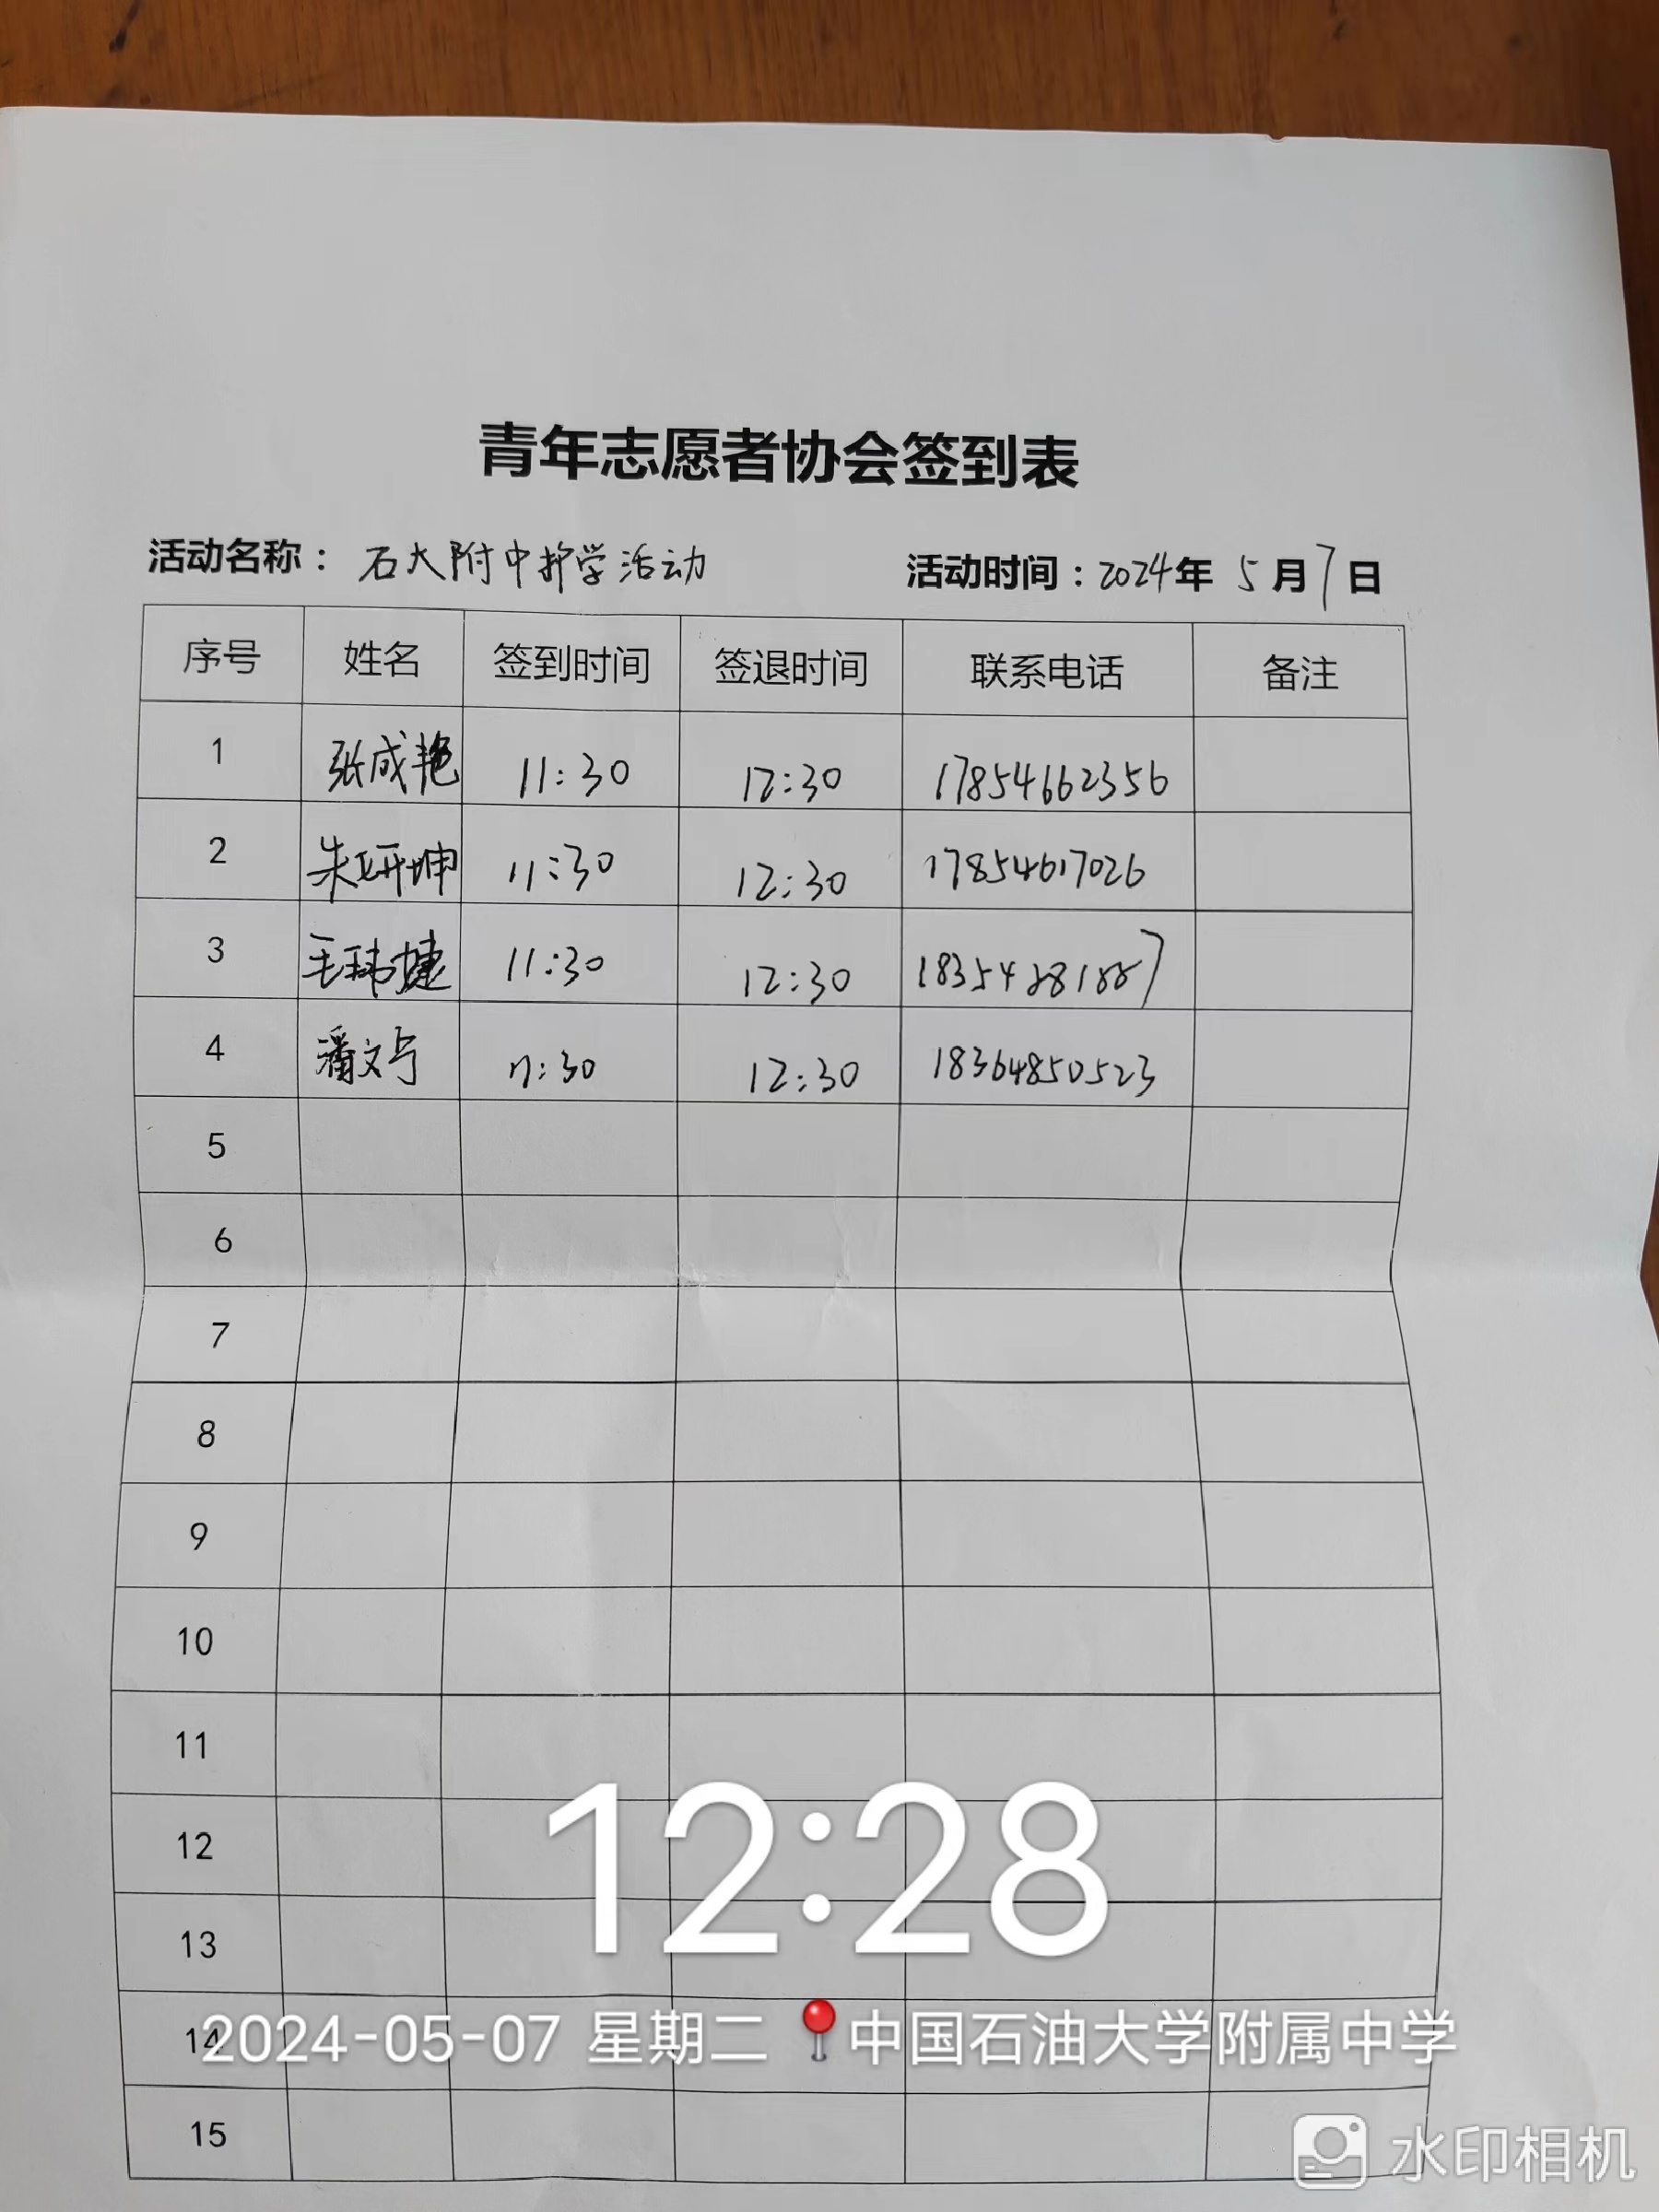 青年志愿者协会签到表
活动名称：石大附中护学活动 活动时间：2024年5月7日
序号 姓名 签到时间 签退时间 联系电话 备注
1 张成艳 11:30 12:30 17854662356
2 朱研坤 11:30 12:30 17854617026
3 王玮捷 11:30 12:30 18354281887
4 潘文宁 11:30 12:30 18364850523
5
6
7
8
9
10
11
12
13
14
15
12:28
2024-05-07 星期二 中国石油大学附属中学
水印相机